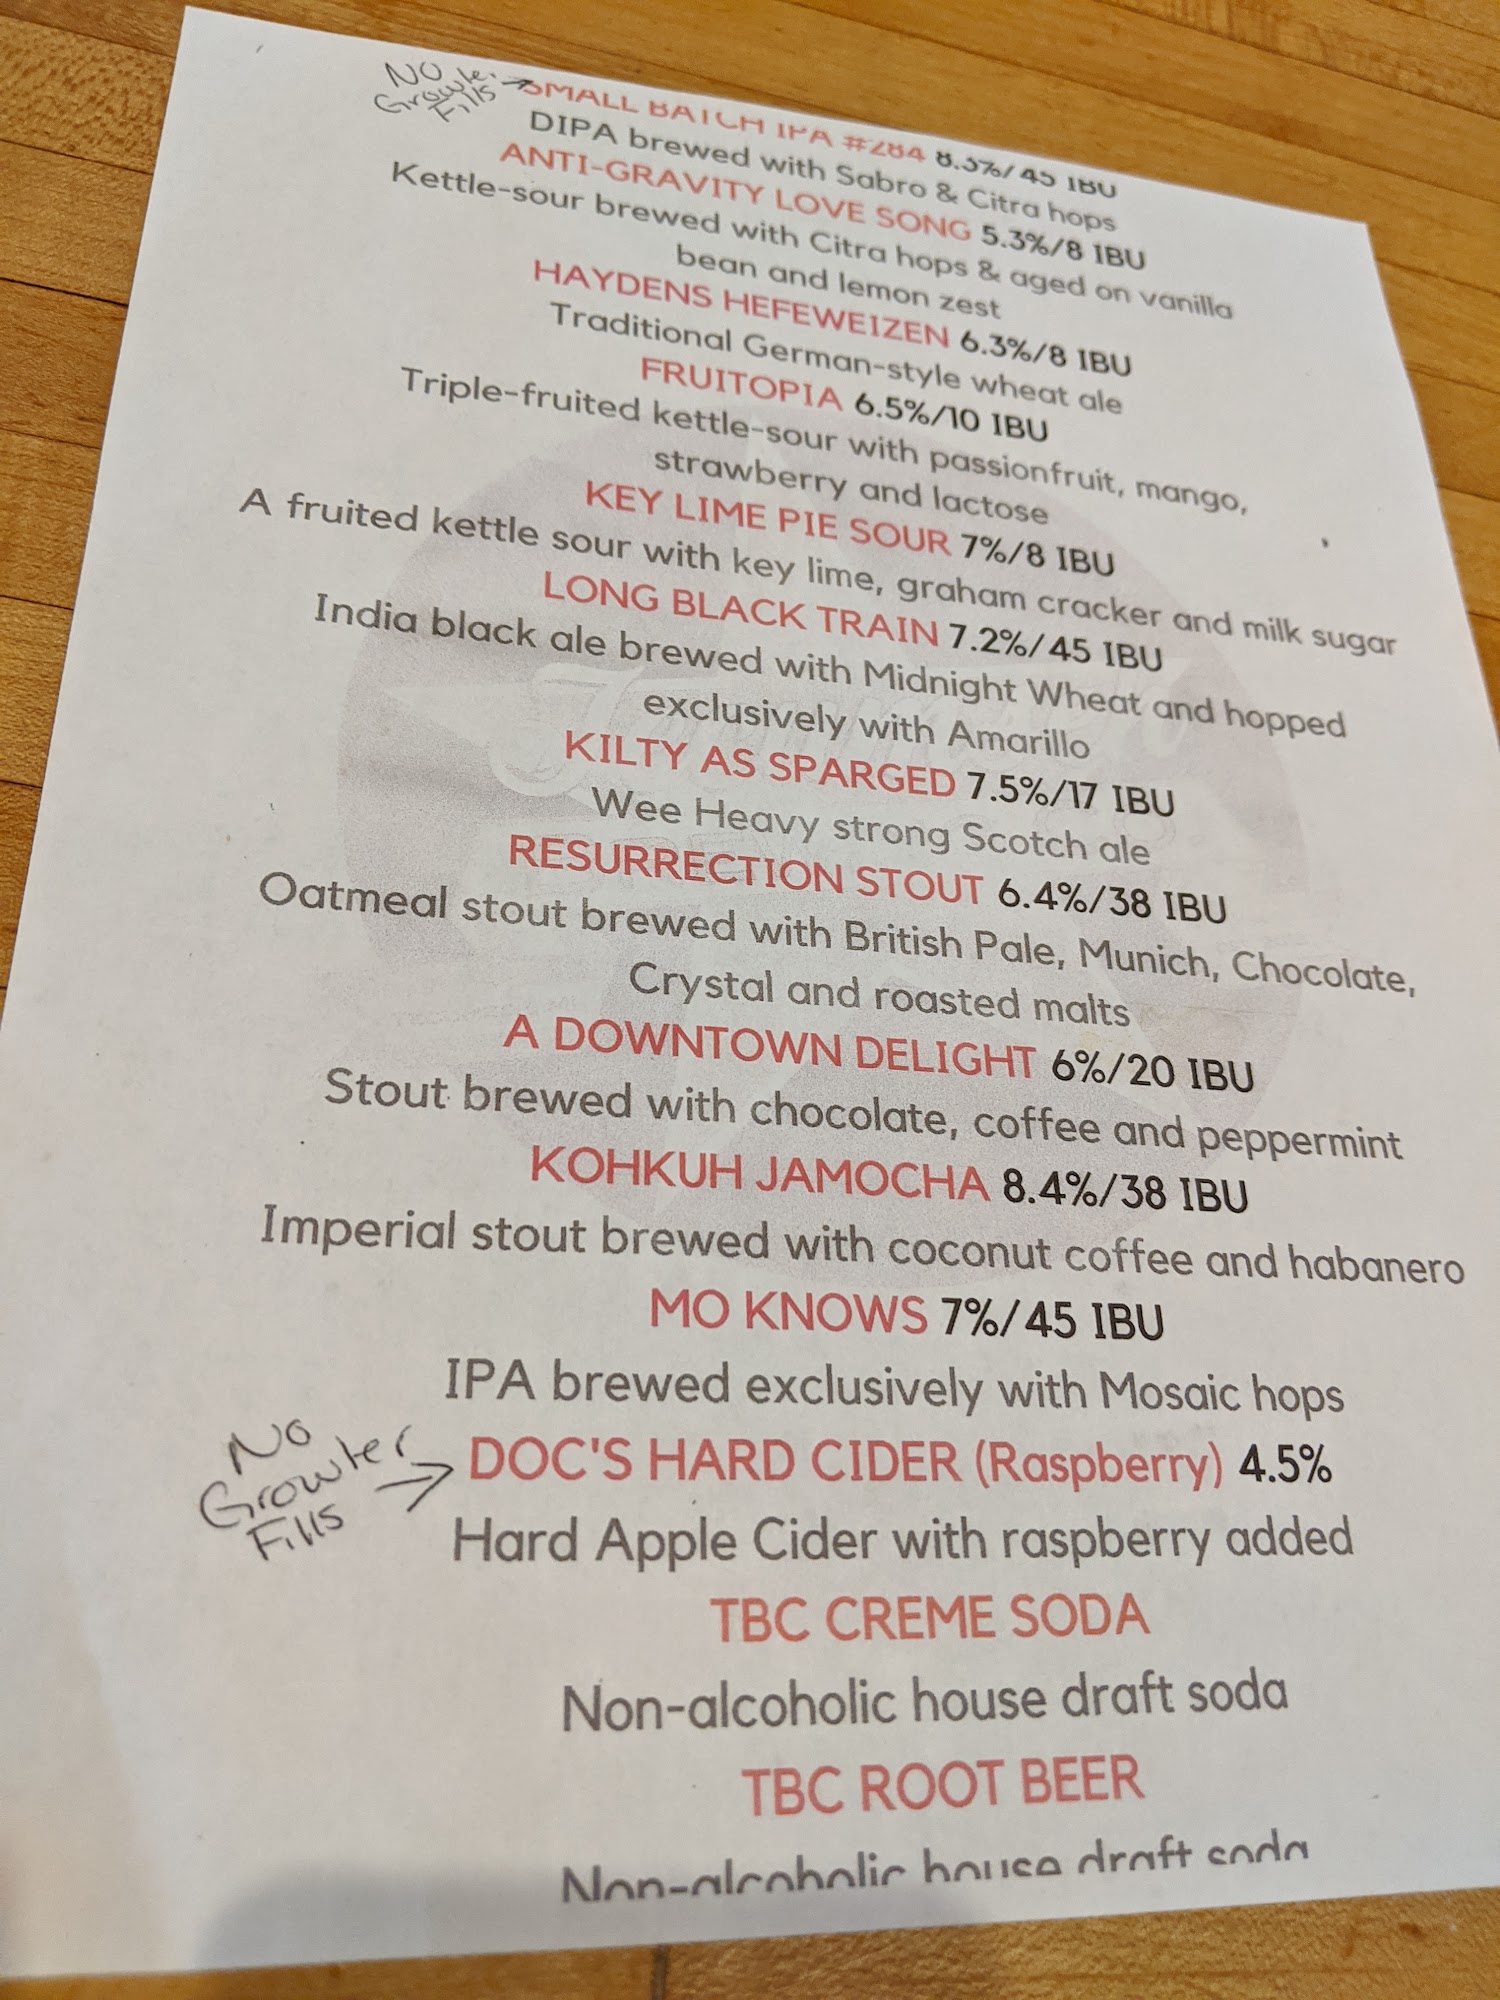 No
Growler
Fills →
SMALL BATCH IPA #284 8.3%/45 IBU
DIPA brewed with Sabro & Citra hops
ANTI-GRAVITY LOVE SONG 5.3%/8 IBU
Kettle-sour brewed with Citra hops & aged on vanilla
bean and lemon zest
HAYDENS HEFEWEIZEN 6.3%/8 IBU
Traditional German-style wheat ale
FRUITOPIA 6.5%/10 IBU
Triple-fruited kettle-sour with passionfruit, mango,
strawberry and lactose
KEY LIME PIE SOUR 7%/8 IBU
A fruited kettle sour with key lime, graham cracker and milk sugar
LONG BLACK TRAIN 7.2%/45 IBU
India black ale brewed with Midnight Wheat and hopped
exclusively with Amarillo
KILTY AS SPARGED 7.5%/17 IBU
Wee Heavy strong Scotch ale
RESURRECTION STOUT 6.4%/38 IBU
Oatmeal stout brewed with British Pale, Munich, Chocolate,
Crystal and roasted malts
A DOWNTOWN DELIGHT 6%/20 IBU
Stout brewed with chocolate, coffee and peppermint
KOHKUH JAMOCHA 8.4%/38 IBU
Imperial stout brewed with coconut coffee and habanero
MO KNOWS 7%/45 IBU
IPA brewed exclusively with Mosaic hops
No
Growler
Fills →
DOC'S HARD CIDER (Raspberry) 4.5%
Hard Apple Cider with raspberry added
TBC CREME SODA
Non-alcoholic house draft soda
TBC ROOT BEER
Non-alcoholic house draft soda